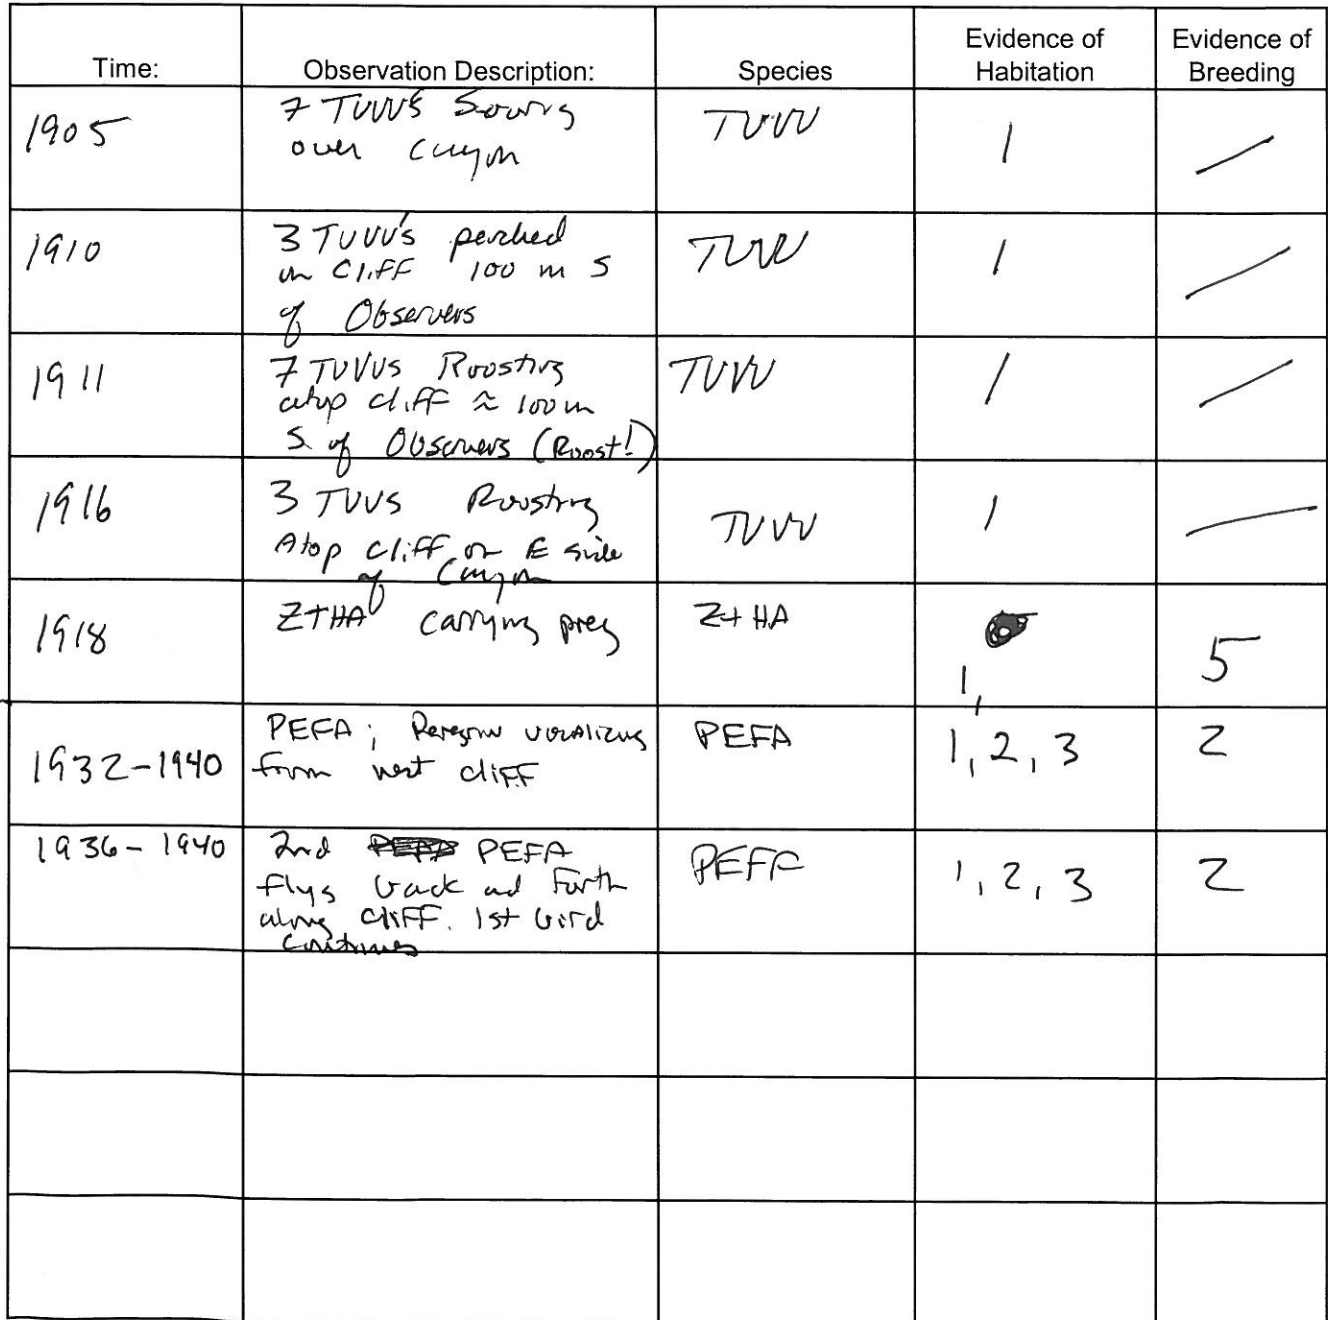 Time: Observation Description: Species Evidence of Habitation Evidence of Breeding
1905 7 TUVU'S Soaring TUVU 1 /
over Canyon
1910 3 TUVU's perched TUVU 1 /
on Cliff 100 m S
of Observers
1911 7 TUVUs Roosting TUVU 1 /
atop cliff ≈ 100 m
S. of Observers (Roost!)
1916 3 TUVUS Roosting TUVU 1 /
Atop cliff on E side
of Canyon
1918 ZTHA carrying prey ZTHA 1, 5
1932-1940 PEFA; Peregrine vocalizing PEFA 1, 2, 3 2
from west cliff
1936-1940 2nd PEFA PEFA 1, 2, 3 2
flys back and Forth
along cliff. 1st bird
continues